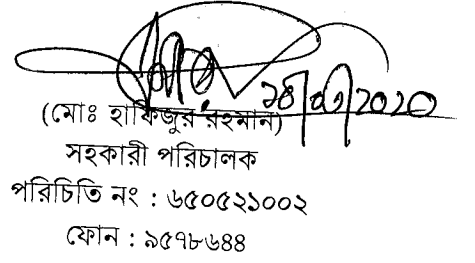 (মোঃ হাফিজুর রহমান)
সহকারী পরিচালক
পরিচিতি নং : ৬৫০৫২১০০২
ফোন : ৯৫৭৮৬৪৪